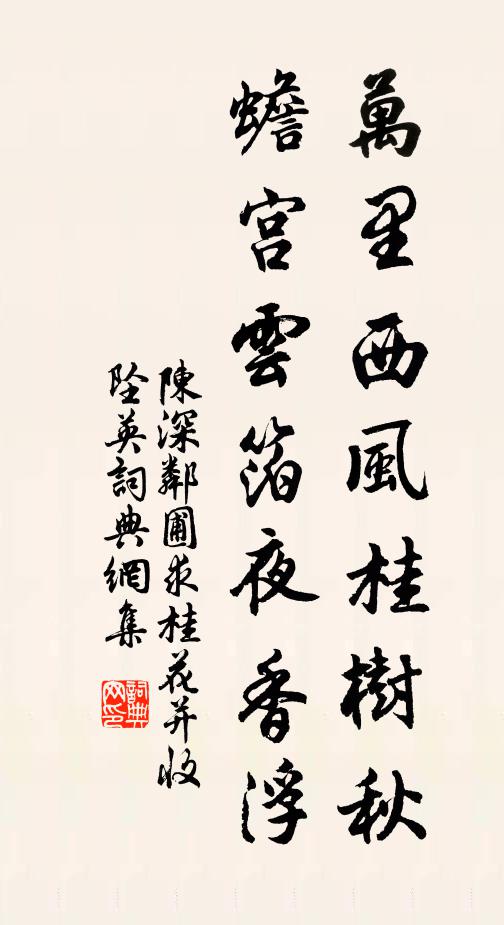 萬里西風桂樹秋
蟾宮雲箔夜香浮
陳深鄰圃求桂花并收
墜英詞典網集
詞典網印